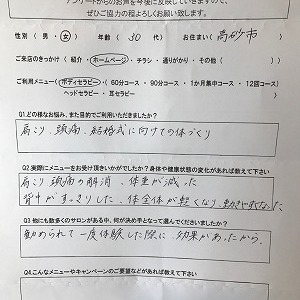 アンケートからのお声を今後に反映していきますので、
ぜひご協力の程よろしくお願い致します。
性別(男・女) 年齢(30代) お住まい(高砂市)
ご来店のきっかけ(紹介・ホームページ・チラシ・通りがかり・その他( ))
ご利用メニュー(ボディセラピー(60分コース・90分コース・1か月集中コース・12回コース)
ヘッドセラピー・耳セラピー)
Q1.どの様なお悩み、また目的でご利用いただきましたか?
肩こり、頭痛、結婚式に向けての体づくり
Q2.実際にメニューをお受け頂きいかがでしたか?身体や健康状態の変化があれば教えて下さい
肩こり、頭痛の解消、体重が減った
背中がすっきりした、体全体が軽くなり、動きやすくなった
Q3.他にも数多くのサロンがある中、何が決め手となって選んでくださいましたか?
勧められて一度体験した際に効果があったから。
Q4.こんなメニューやキャンペーンのご要望などがあれば教えて下さい